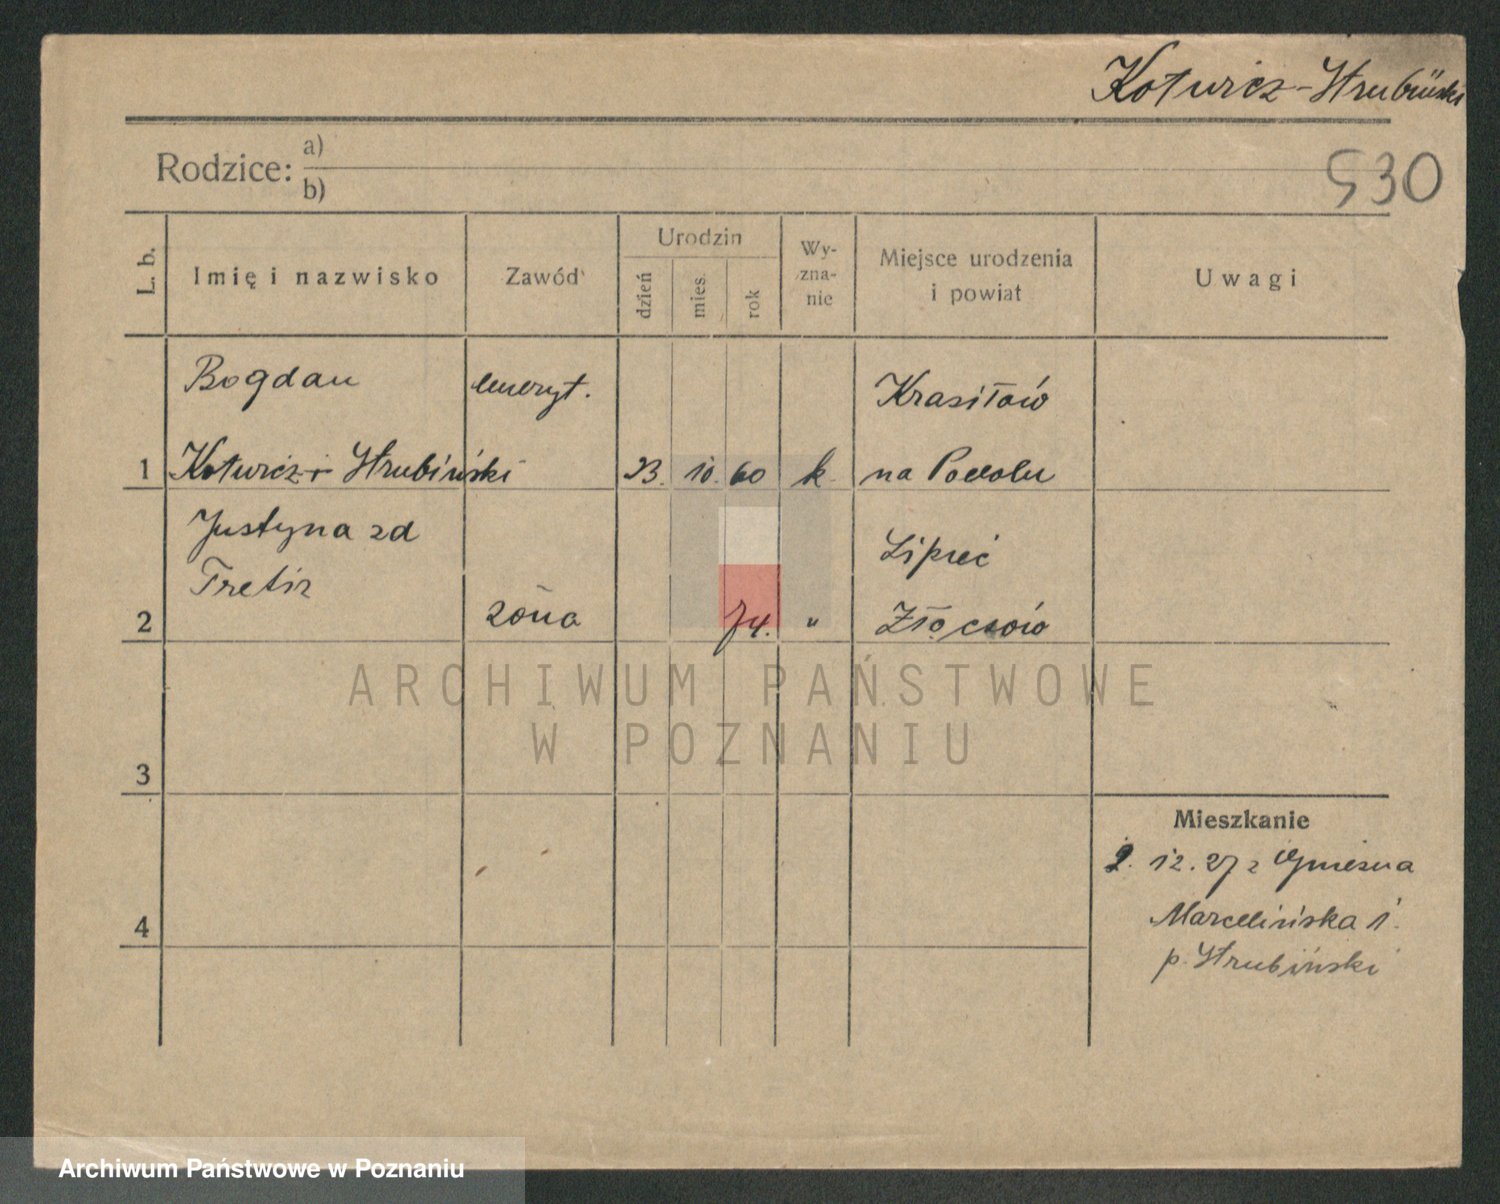 Kotwicz-Hrubiński
Rodzice: a)
b)
530
L. b.
Imię i nazwisko
Zawód
Urodzin
dzień
mies.
rok
Wy-
zna-
nie
Miejsce urodzenia
i powiat
Uwagi
Bogdan
emeryt.
Krasiłów
1 Kotwicz-Hrubiński 23. 10. 60 k. na Podolu
Justyna zd
Lipiec
2 żona 74. " Złoczów
ARCHIWUM PAŃSTWOWE
W POZNANIU
3
Mieszkanie
2. 12. 27 z Gniezna
4 Marcelińska 1.
p. Hrubiński
Archiwum Państwowe w Poznaniu